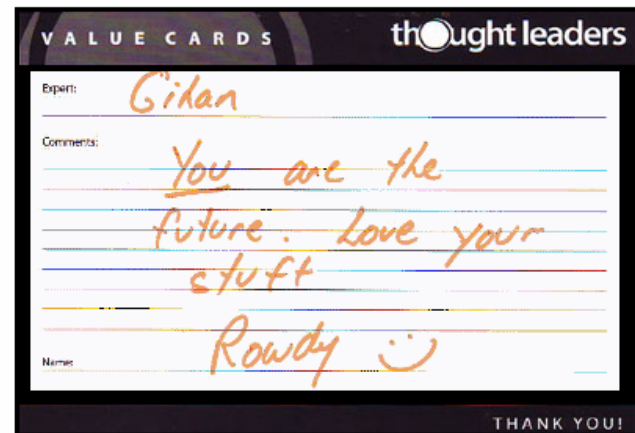 VALUE CARDS
thought leaders
Expert: Gihan
Comments:
You are the
future. Love your
stuff
Name: Rowdy
THANK YOU!